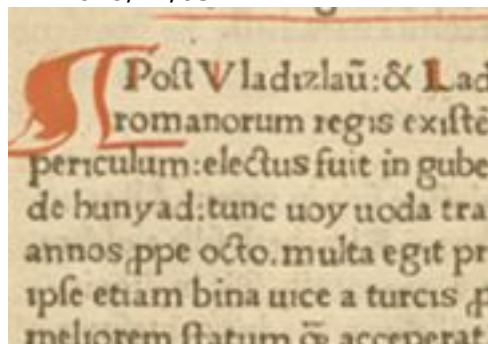 ¶ Poſt Vladizlaū:& Lad
romanorum regis exiſtē
periculum:electus fuit in gube
de hunyad:tunc uoy uoda tra
annos ꝓppe octo. multa egit pr
ipſe etiam bina uice a turcis ꝓ
meliorem ſtatum ꝙ acceperat